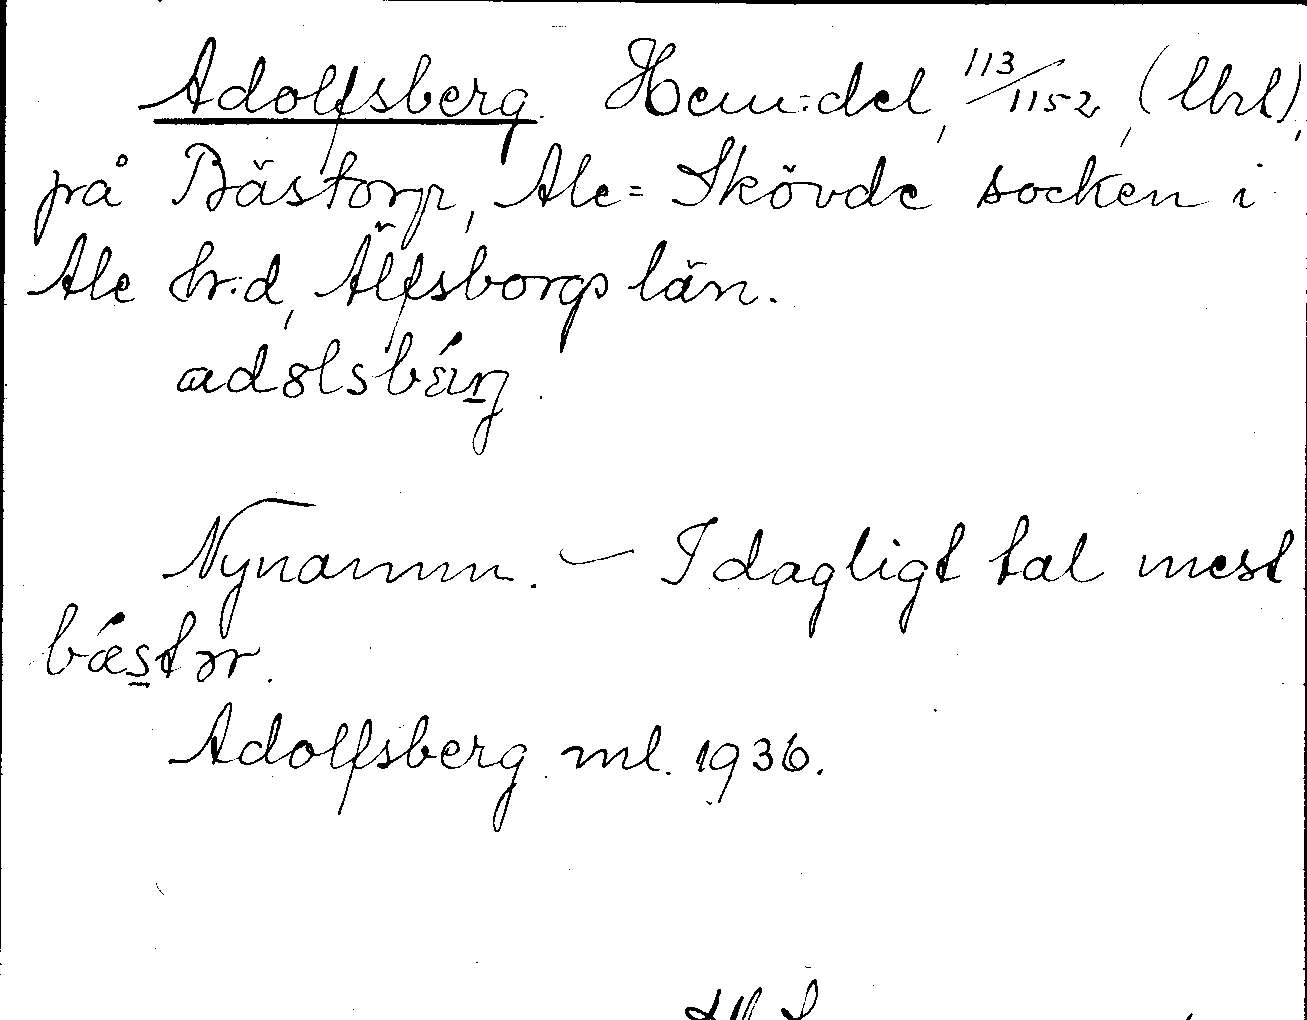 Adolfsberg. Hem:del, 113/1152, (lbrl),
på Bästorp, Ale=Skövde socken i
Ale hr:d, Älfsborgs län.
Nynamn. – I dagligt tal mest
bǽstər.
Adolfsberg ml. 1936.